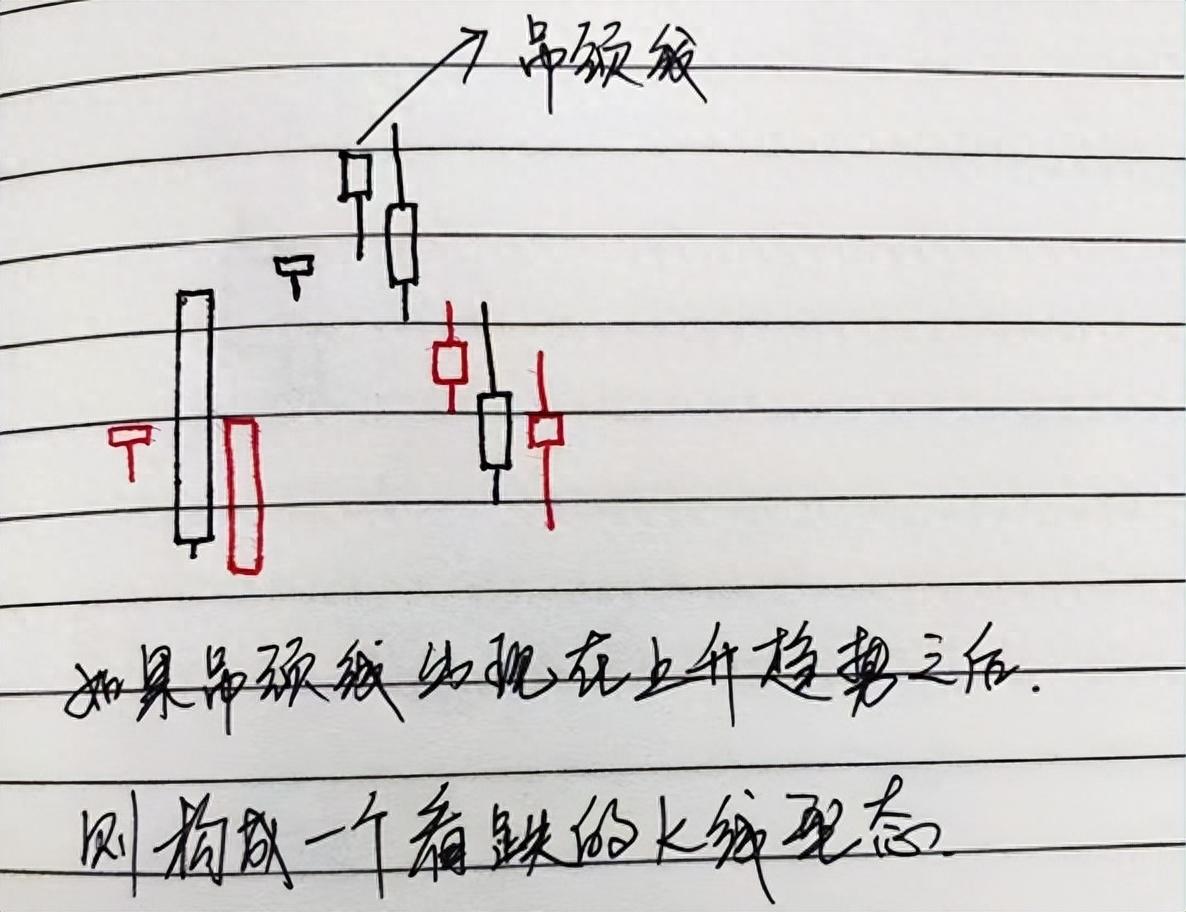 吊颈线
如果吊颈线出现在上升趋势之后.
则构成一个看跌的K线型态.